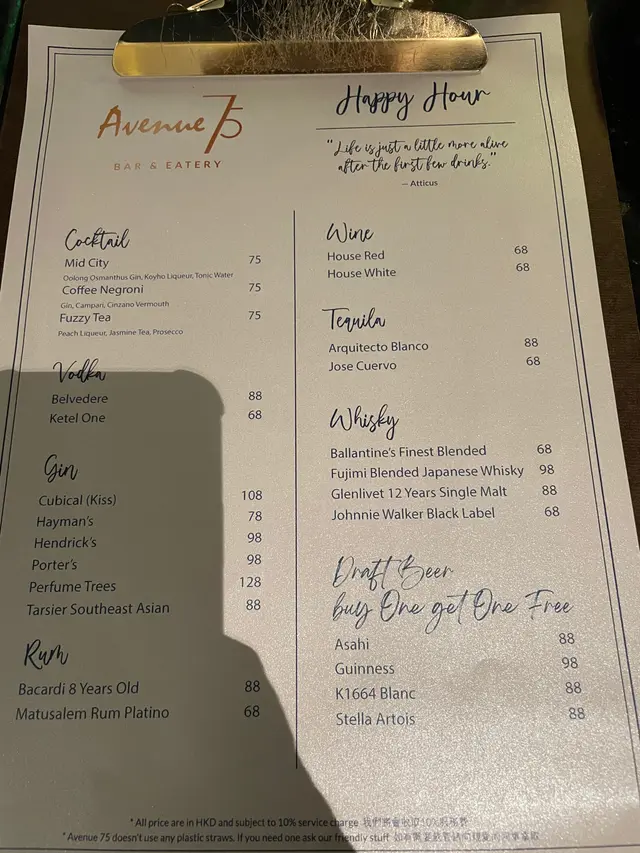 Avenue 75
BAR & EATERY
Happy Hour
"Life is just a little more alive
after the first few drinks."
— Atticus
Cocktail
Mid City 75
Oolong Osmanthus Gin, Koyho Liqueur, Tonic Water
Coffee Negroni 75
Gin, Campari, Cinzano Vermouth
Fuzzy Tea 75
Peach Liqueur, Jasmine Tea, Prosecco
Vodka
Belvedere 88
Ketel One 68
Gin
Cubical (Kiss) 108
Hayman's 78
Hendrick's 98
Porter's 98
Perfume Trees 128
Tarsier Southeast Asian 88
Rum
Bacardi 8 Years Old 88
Matusalem Rum Platino 68
Wine
House Red 68
House White 68
Tequila
Arquitecto Blanco 88
Jose Cuervo 68
Whisky
Ballantine's Finest Blended 68
Fujimi Blended Japanese Whisky 98
Glenlivet 12 Years Single Malt 88
Johnnie Walker Black Label 68
Draft Beer
buy One get One Free
Asahi 88
Guinness 98
K1664 Blanc 88
Stella Artois 88
* All price are in HKD and subject to 10% service charge
* Avenue 75 doesn't use any plastic straws. If you need one ask our friendly stuff